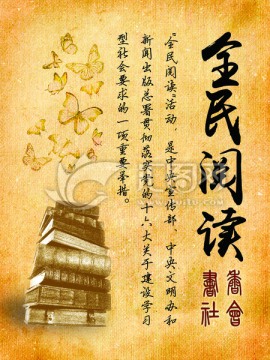 全民阅读
書香
社會
“全民阅读”活动，是中央宣传部、中央文明办和
新闻出版总署贯彻落实党的十六大关于建设学习
型社会要求的一项重要举措。